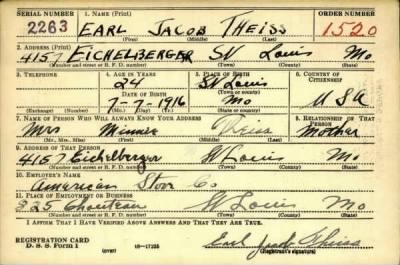 SERIAL NUMBER 1. NAME (Print) ORDER NUMBER
2263 EARL JACOB THEISS 1520
(First) (Middle) (Last)
2. ADDRESS (Print)
4157 EICHELBERGER St Louis Mo
(Number and street or R. F. D. number) (Town) (County) (State)
3. TELEPHONE 4. AGE IN YEARS 5. PLACE OF BIRTH 6. COUNTRY OF CITIZENSHIP
24 St Louis
DATE OF BIRTH (Town or county)
7-7-1916 Mo USA
(Exchange) (Number) (Mo.) (Day) (Yr.) (State or country)
7. NAME OF PERSON WHO WILL ALWAYS KNOW YOUR ADDRESS 8. RELATIONSHIP OF THAT PERSON
Mrs Minnie Theiss Mother
(Mr., Mrs., Miss) (First) (Middle) (Last)
9. ADDRESS OF THAT PERSON
4157 Eichelberger St Louis Mo
(Number and street or R. F. D. number) (Town) (County) (State)
10. EMPLOYER'S NAME
American Stove Co
11. PLACE OF EMPLOYMENT OR BUSINESS
825 Chouteau St Louis Mo
(Number and street or R. F. D. number) (Town) (County) (State)
I AFFIRM THAT I HAVE VERIFIED ABOVE ANSWERS AND THAT THEY ARE TRUE.
REGISTRATION CARD
D. S. S. Form 1 (over) 16-17105 Earl Jacob Theiss
(Registrant's signature)